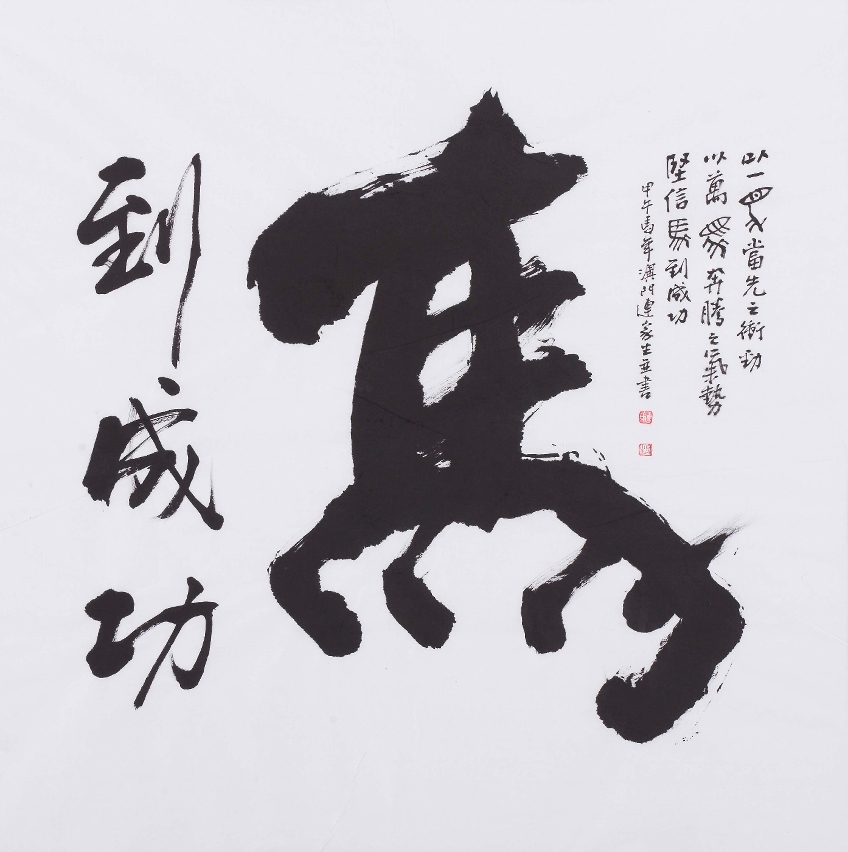 以一馬當先之衝勁
以萬馬奔騰之氣勢
堅信馬到成功
甲午馬年澳門連家生並書
馬
到成功